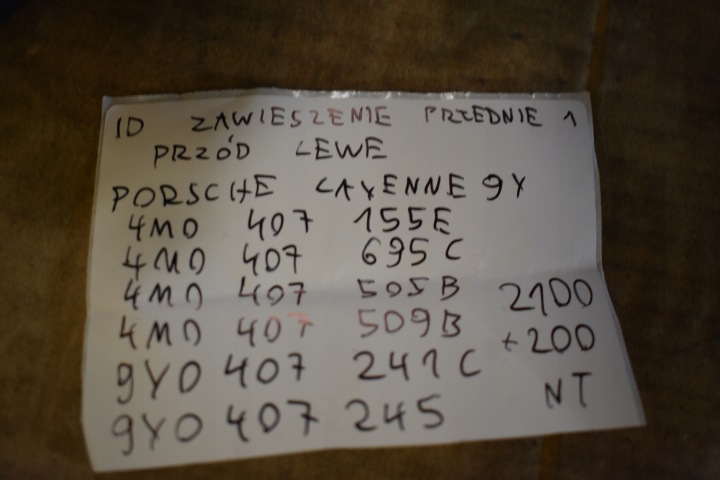 ID ZAWIESZENIE PRZEDNIE 1
PRZÓD LEWE
PORSCHE CAYENNE 9Y
4M0 407 155E
4M0 407 695 C
4M0 407 505B
4M0 407 509B
9Y0 407 241 C
9Y0 407 245
2100
+200
NT